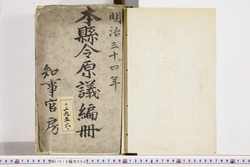 明治三十四年
本縣令原議編冊
知事官房